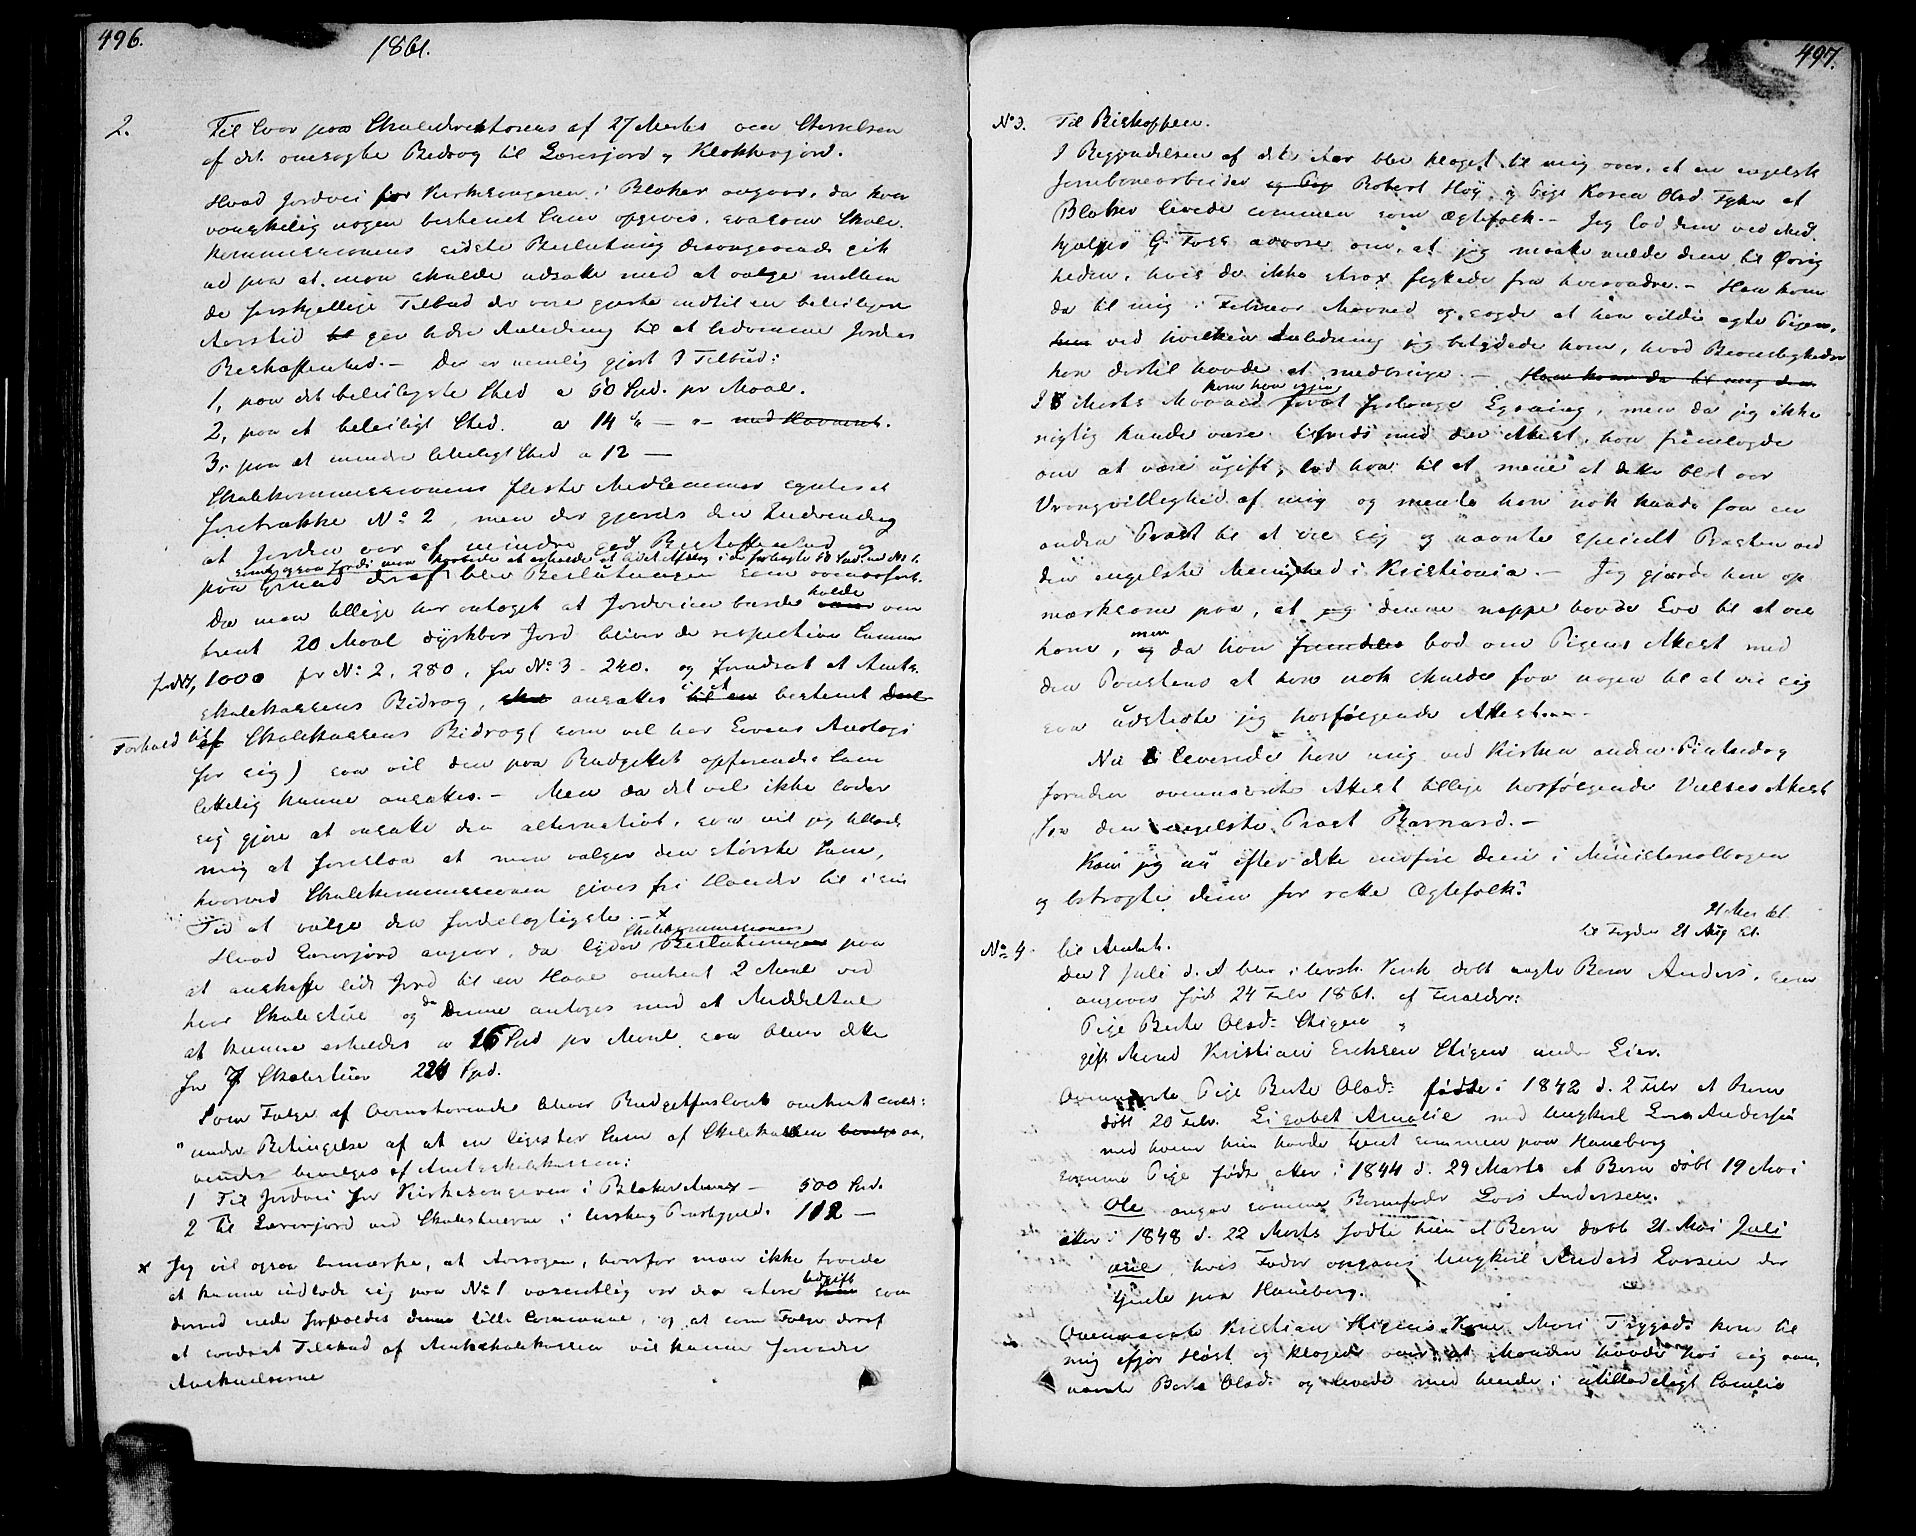 496.
1861.
2.
Til Svar paa Skoledirektionens af 27 Marts om Størrelsen
af det ansøgte Bidrag til Lærerjord og Klokkerjord.
Hvad Jordvei for Kirkesangeren i Blaker angaar, da kan
vanskelig nogen bestemt Sum opgives, saasom Skole
kommissionens sidste Beslutning desangaaende gik
ud paa at man skulde udsætte med at vælge mellem
de forskjellige Tilbud der vare gjorte indtil en beleiligere
Aarstid gav bedre Anledning til at bedømme Jordens
Beskaffenhed. - Der er nemlig gjort 3 Tilbud:
1, paa det beleiligste Sted a 50 Spd. pr Maal.
2, paa et beleiligt Sted. a 14 - " - med Havnen.
3, paa et mindre beleiligt Sted a 12 -
Skolekommissionens fleste Medlemmer syntes at
foretrække No 2, men der gjordes den Indvending
at Jorden var af mindre god Beskaffenhed og
paa Grund deraf blev Beslutningen som ovenanført.
Da man tillige har antaget at Jordveien burde holde om
trent 20 Maal dyrkbar Jord bliver de respektive Summer
for No 1, 1000 for No 2, 280, for No 3 - 240. og forudsat at Amts
skolekassens Bidrag, ansættes i et bestemt
Forhold til Skolekassens Bidrag (som vel har Lovens Analogi
for sig) saa vil den paa Budgettet opførende Sum
lettelig kunne ansættes. - Men da det vel ikke lader
sig gjøre at ansætte den alternativt, saa vil jeg tillade
mig at foreslaa at man vælger den største Sum,
hvorved Skolekommissionen gives fri Hænder til i sin
Tid at vælge det fordelagtigste. - x
Hvad Lærerjord angaar, da lyder Skolekommissionens Beslutning paa
at anskaffe lidt Jord til en Have omtrent 2 Maal ved
hver Skolestue og da Denne antages med et Middeltal
at kunne erholdes a 16 Spd pr Maal saa bliver dette
for 7 Skolestuer 224 Spd.
Som Følge af Ovenstaaende bliver Budgetforslaget omtrent
" under Betingelse af at en ligestor Sum af Skolekassen
bevilges af Amtsskolekassen:
1 Til Jordvei for Kirkesangeren i Blaker Annex - 500 Spd.
2 Til Lærerjord ved Skolestuerne i Urskoug Præstegjeld. 112 -
x Jeg vil ogsaa bemærke, at Aarsagen, hvorfor man ikke troede
at kunne indlade sig paa No 1 væsentlig var den store Udgift som
derved vilde forvoldes denne lille Commune, og at som Følge deraf
et saadant Tilskud af Amtsskolekassen vil kunne forandre
Anskuelserne
497.
No 3. Til Biskoppen.
I Begyndelsen af dette Aar blev klaget til mig over, at en engelsk
Jernbanearbeider Robert Høy og Pige Karen Olsd. af
Blaker levede sammen som Ægtefolk. - Jeg lod dem ved Med
hjælper G. Foss advare om, at jeg maatte melde dem til Øvrig
heden, hvis de ikke strax flyttede fra hverandre. - Han kom
da til mig i Februar Maaned og sagde at han vilde ægte Pigen,
ved hvilken Anledning jeg betydede ham, hvad Bevisligheder
han dertil havde at medbringe. - Han kom da til mig den
I Marts Maaned kom han igjen for at forlange Lysning, men da jeg ikke
rigtig kunde være tilfreds med den Attest, han fremlagde
om at være ugift, lod han til at mene at dette blot var
Vrangvillighed af mig og mente han nok kunde faa en
anden Præst til at vie sig og nævnte specielt Præsten ved
den engelske Menighed i Kristiania. - Jeg gjorde ham op
mærksom paa, at denne neppe havde Lov til at vie
ham, men da han bad om Pigens Attest med
den Paastand at han nok skulde faa nogen til at vie sig
saa udstedte jeg hosfølgende Attest. -
Nu leverede han mig ved Kirken anden Pintsedag
foruden ovennævnte Attest tillige hosfølgende Vielses Attest
fra den engelske Præst Barnard. -
Kan jeg nu efter dette indføre dem i Ministerialbogen
og betragte dem for rette Ægtefolk?
21 Mai 61.
til Fogden 21 Aug 61.
No 4. til Amtet.
Den 7 Juli d. A blev i Ursk. Kirk døbt uægte Barn Anders, som
angives født 24 Febr 1861. af Forældre:
Pige Berte Olsd. Stigen
gift Mand Kristian Eriksen Stigen under Lier.
Ovennævnte Pige Berte Olsd. fødte i 1842 d. 2 Febr et Barn
døbt 20 Febr. Lisabet Amalie med Ungkarl Lars Andersen
med hvem hun havde tjent sammen paa Haneborg
samme Pige fødte atter i 1844 d. 29 Marts et Barn døbt 19 Mai
Ole angav samme Barnefader Lars Andersen.
atter i 1848 d. 22 Marts fødte hun et Barn døbt 21 Mai Juli
ane, hvis Fader opgaves Ungkarl Anders Larsen der
tjente paa Haneborg.
Ovennævnte Kristian Stigens Kone Mari Tryggsd. kom til
mig ifjor Høst og klagede over, at Manden havde hos sig oven
nævnte Berte Olsd. og levede med hende i utilladeligt Samliv